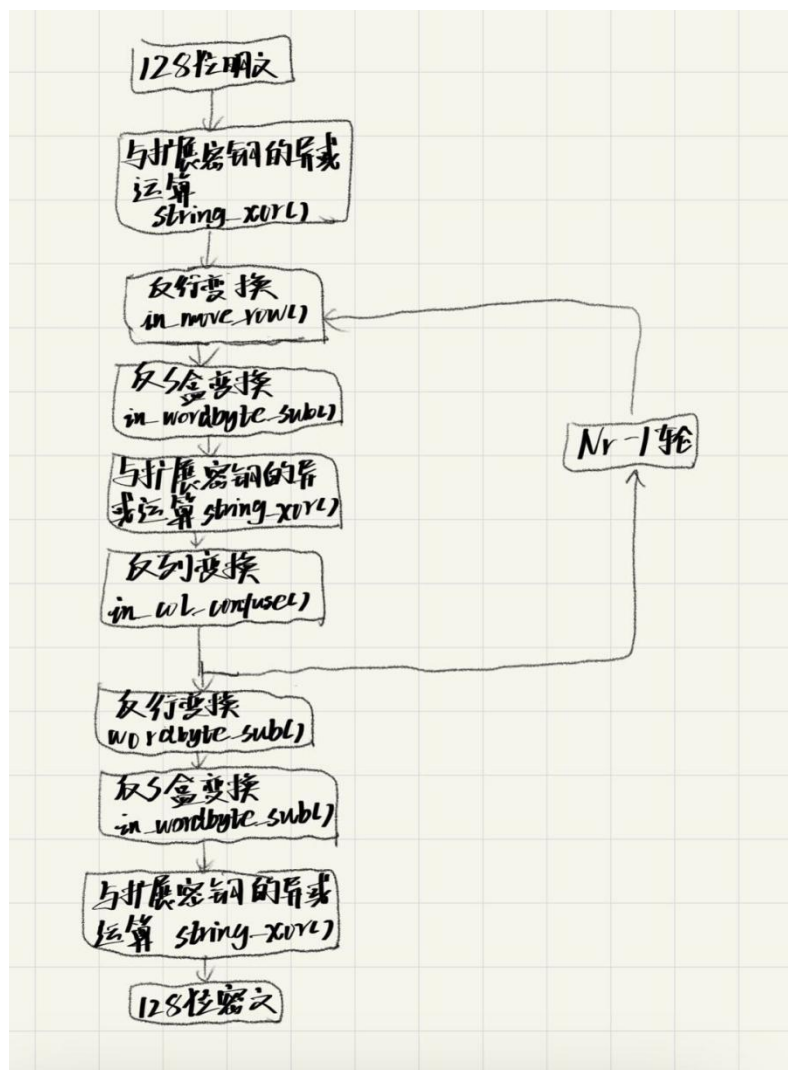 128位明文
与扩展密钥的异或
运算
string_xor()
反行变换
in_move_row()
反S盒变换
in_wordbyte_sub()
与扩展密钥的异
或运算 string_xor()
反列变换
in_col_confuse()
Nr-1轮
反行变换
wordbyte_sub()
反S盒变换
in_wordbyte_sub()
与扩展密钥的异或
运算 string_xor()
128位密文